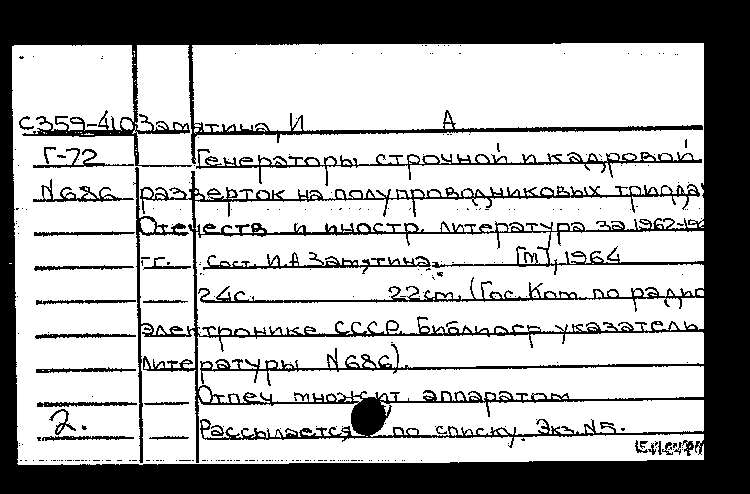 С359-410 Замятина, И А
Г-72 Генераторы строчной и кадровой
N686 разверток на полупроводниковых триодах
Отечеств и иностр. литература за 1962-196
гг. Сост. И.А Замятина. [М], 1964
24с. 22см. (Гос. Ком. по радио
электронике СССР. Библиогр указатель
литературы N686).
Отпеч множит. аппаратом
2. Рассылается по списку. Экз. N5.